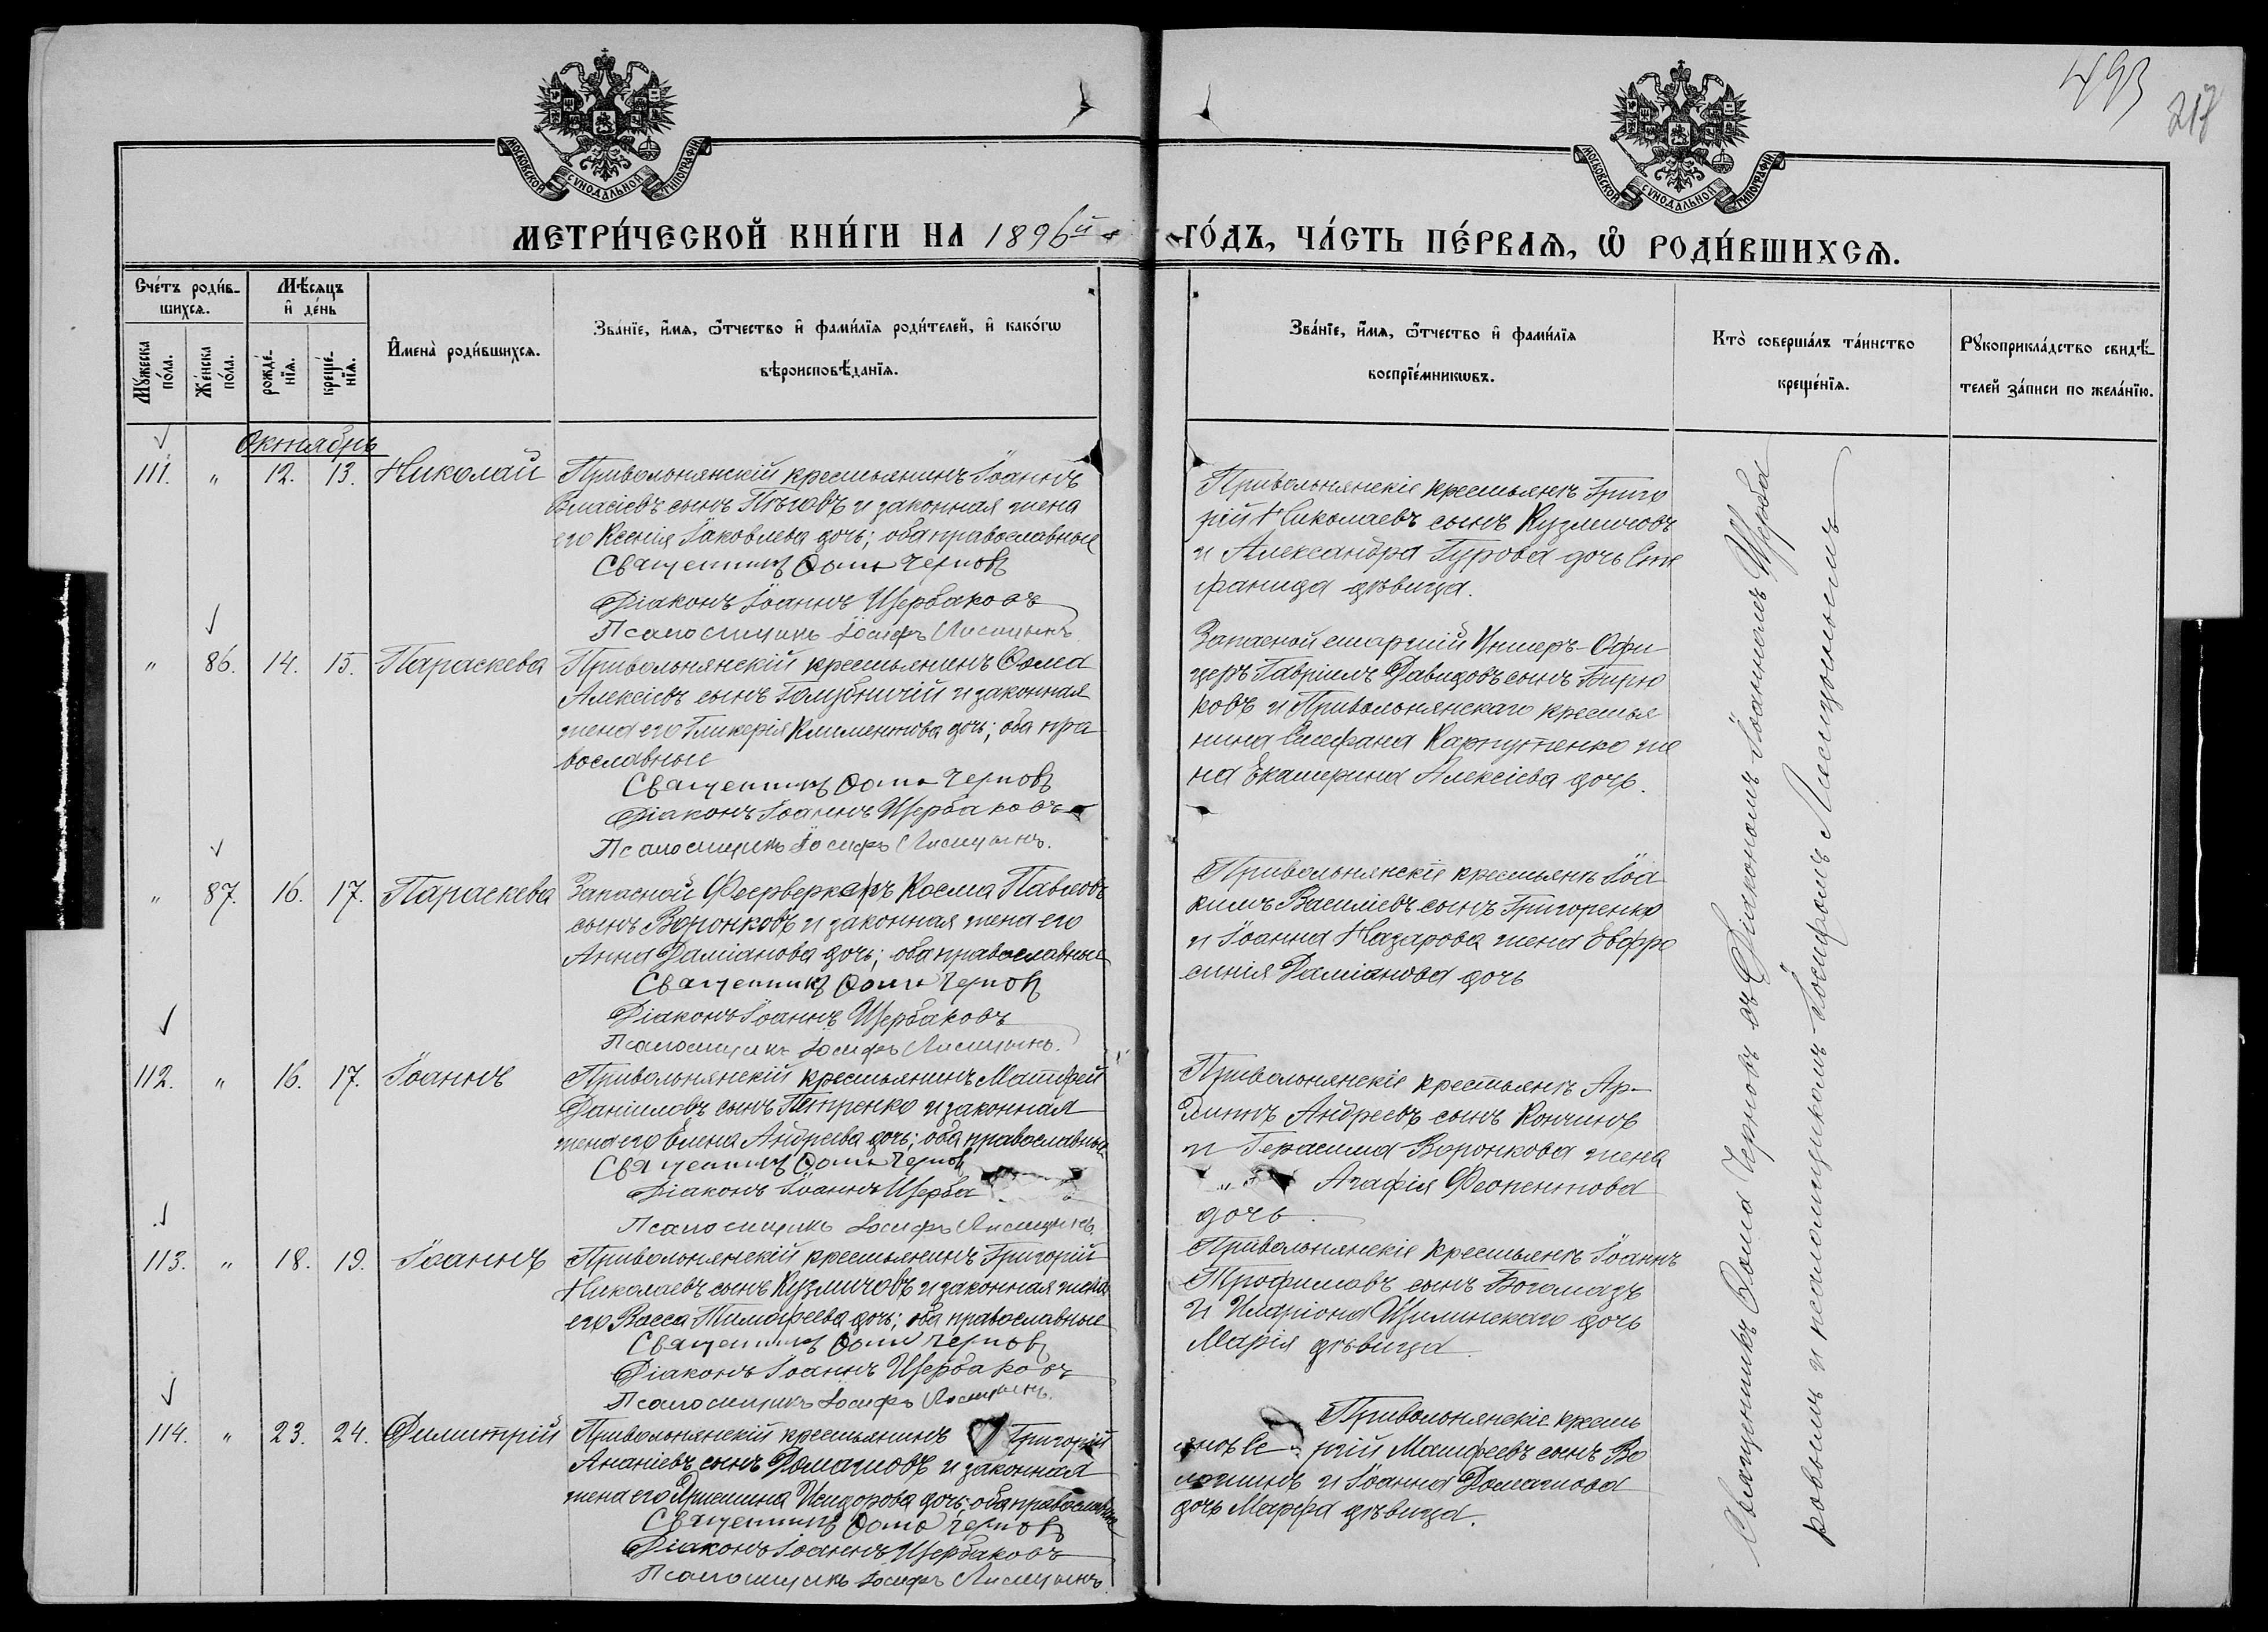 493
217
МОСКОВСКОЙ СѴНОДАЛЬНОЙ ТИПОГРАФІИ
МОСКОВСКОЙ СѴНОДАЛЬНОЙ ТИПОГРАФІИ
МЕТРИ́ЧЕСКОЙ КНИ́ГИ НА 1896й
ГО́ДЪ, ЧА́СТЬ ПЕ́РВАѦ, Ѡ РОДИ́ВШИХСѦ.
Сче́тъ роди́в-
шихсѧ.
Мѣ́сѧцъ
и де́нь
Мꙋ́жеска
по́ла.
Же́нска
по́ла.
рожде́-
нїѧ.
креще́-
нїѧ.
Имена̀ роди́вшихсѧ.
Зва́нїе, и́мѧ, ѻ҆́тчество и фами́лїѧ роди́телей, и како́гѡ
вѣроисповѣ́данїѧ.
Зва́нїе, и́мѧ, ѻ҆́тчество и фами́лїѧ
воспрїе́мникѡвъ.
Кто̀ соверша́лъ та́инство
креще́нїѧ.
Рꙋкоприкла́дство свидѣ́-
телей за́писи по жела́нїю.
Октябрь
111. " 12. 13. Николай
Привольнянскій крестьянинъ Іоаннъ
Власіевъ сынъ Пѣговъ и законная жена
его Ксенія Іаковлева дочь; оба православные
Священникъ Ѳома Черновъ
Діаконъ Іоаннъ Щербаковъ
Псаломщикъ Іосифъ Лисицынъ
Привольнянскіе крестьяне Григо
рій Николаевъ сынъ Кузмичовъ
и Александра Гурова дочь Сте
фанида дѣвица.
" 86. 14. 15. Параскева
Привольнянскій крестьянинъ Ѳома
Алексіевъ сынъ Голубничій и законная
жена его Гликерія Климентова дочь; оба пра
вославные
Священникъ Ѳома Черновъ
Діаконъ Іоаннъ Щербаковъ
Псаломщикъ Іосифъ Лисицынъ.
Запасной старшій Унтеръ-Офи-
церъ Гавріилъ Давидовъ сынъ Бирю
ковъ и Привольнянскаго крестья
нина Стефана Карпутенко же
на Екатерина Алексіева дочь.
" 87. 16. 17. Параскева
Запасной Фейрверкеръ Косма Павловъ
сынъ Воронковъ и законная жена его
Анна Даміанова дочь; оба православные
Священникъ Ѳома Черновъ
Діаконъ Іоаннъ Щербаковъ
Псаломщикъ Іосифъ Лисицынъ.
Привольнянскіе крестьяне Іоа
кимъ Василіевъ сынъ Григоренко
и Іоанна Назарова жена Евфро
синія Даміанова дочь
112. " 16. 17. Іоаннъ
Привольнянскій крестьянинъ Матѳей
Даніиловъ сынъ Петренко и законная
жена его Елена Андреева дочь; оба православные
Священникъ Ѳома Черновъ
Діаконъ Іоаннъ Щерба
Псаломщикъ Іосифъ Лисицынъ
Привольнянскіе крестьяне
Андреевъ сынъ Кончинъ
и Герасима Воронкова жена
Агафія Ѳеопентова
дочь.
113. " 18. 19. Іоаннъ
Привольнянскій крестьянинъ Григорій
Николаевъ сынъ Кузмичовъ и законная жена
его Васса Тимоѳеева дочь; оба православные
Священникъ Ѳома Черновъ
Діаконъ Іоаннъ Щербаковъ
Псаломщикъ Іосифъ Лисицынъ.
Привольнянскіе крестьяне Іоаннъ
Трофимовъ сынъ Богомазъ
и Иларіона Щилинскаго дочь
Марія дѣвица.
114. " 23. 24. Димитрій
Привольнянскій крестьянинъ Григорій
Ананіевъ сынъ Домашовъ и законная
жена его Исидорова дочь; оба православные
Священникъ Ѳома Черновъ
Діаконъ Іоаннъ Щербаковъ
Псаломщикъ Іосифъ Лисицынъ.
Привольнянскіе кресть
яне Се ргій Матѳеевъ сынъ Во
лошинъ и Іоанна Домашова
дочь Марѳа дѣвица.
Священникъ Ѳома Черновъ съ Діакономъ Іоанномъ Щерба
ковымъ и псаломщикомъ Іосифомъ Лисицынымъ